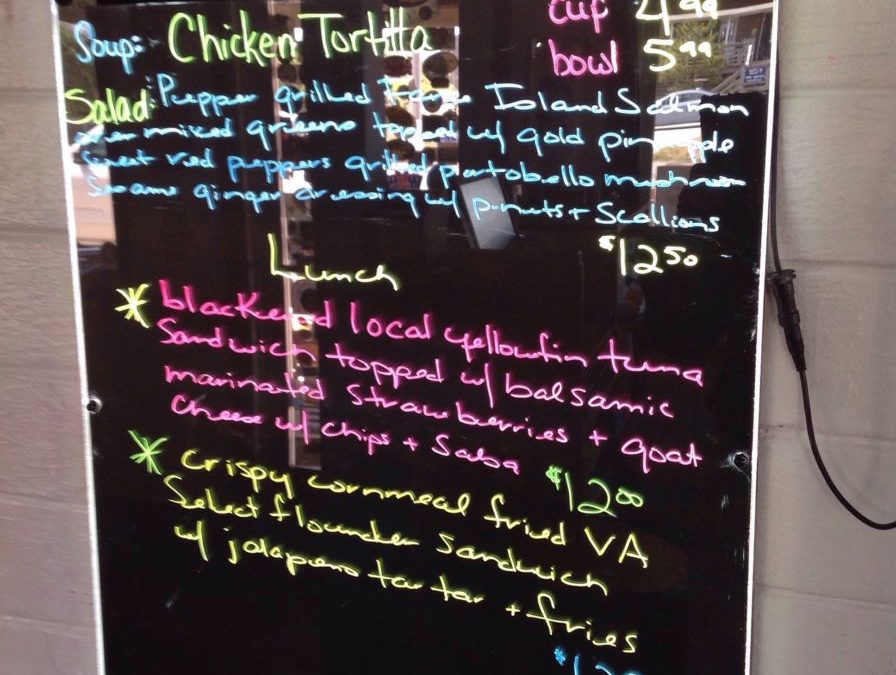 cup 4.99
Soup: Chicken Tortilla bowl 5.99
Salad: Pepper grilled Faroe Island Salmon
over mixed greens topped w/ gold pineapple
sweet red peppers grilled portobello mushroom
Sesame ginger dressing w/ p-nuts + Scallions
$12.50
Lunch
* blackened local yellowfin tuna
Sandwich topped w/ balsamic
marinated strawberries + goat
cheese w/ chips + Salsa $12.00
* crispy cornmeal fried VA
Select flounder sandwich
w/ jalapeno tartar + fries